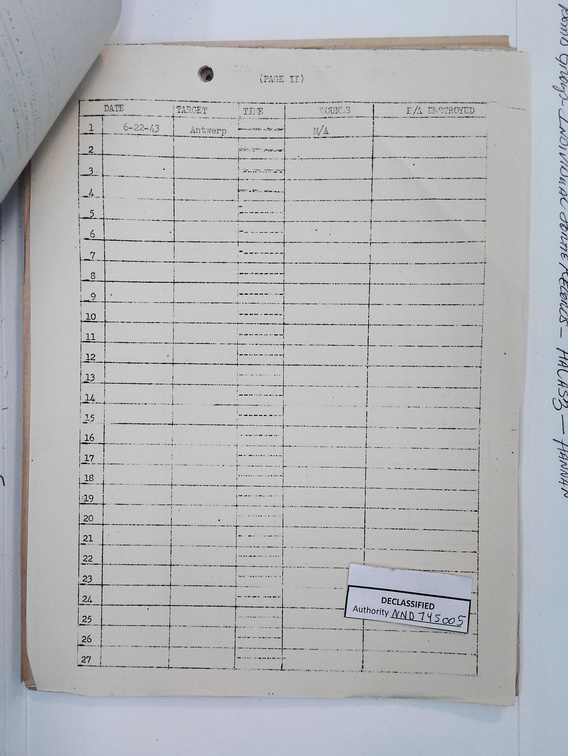 (PAGE II)
DATE TARGET TIME WOUNDS E/A DESTROYED
1 6-22-43 Antwerp M/A
2
3
4
5
6
7
8
9
10
11
12
13
14
15
16
17
18
19
20
21
22
23
24
25
26
27
DECLASSIFIED
Authority NND 745005
Bomb Group - Individual Sortie Records - HALASZ - HANNAN